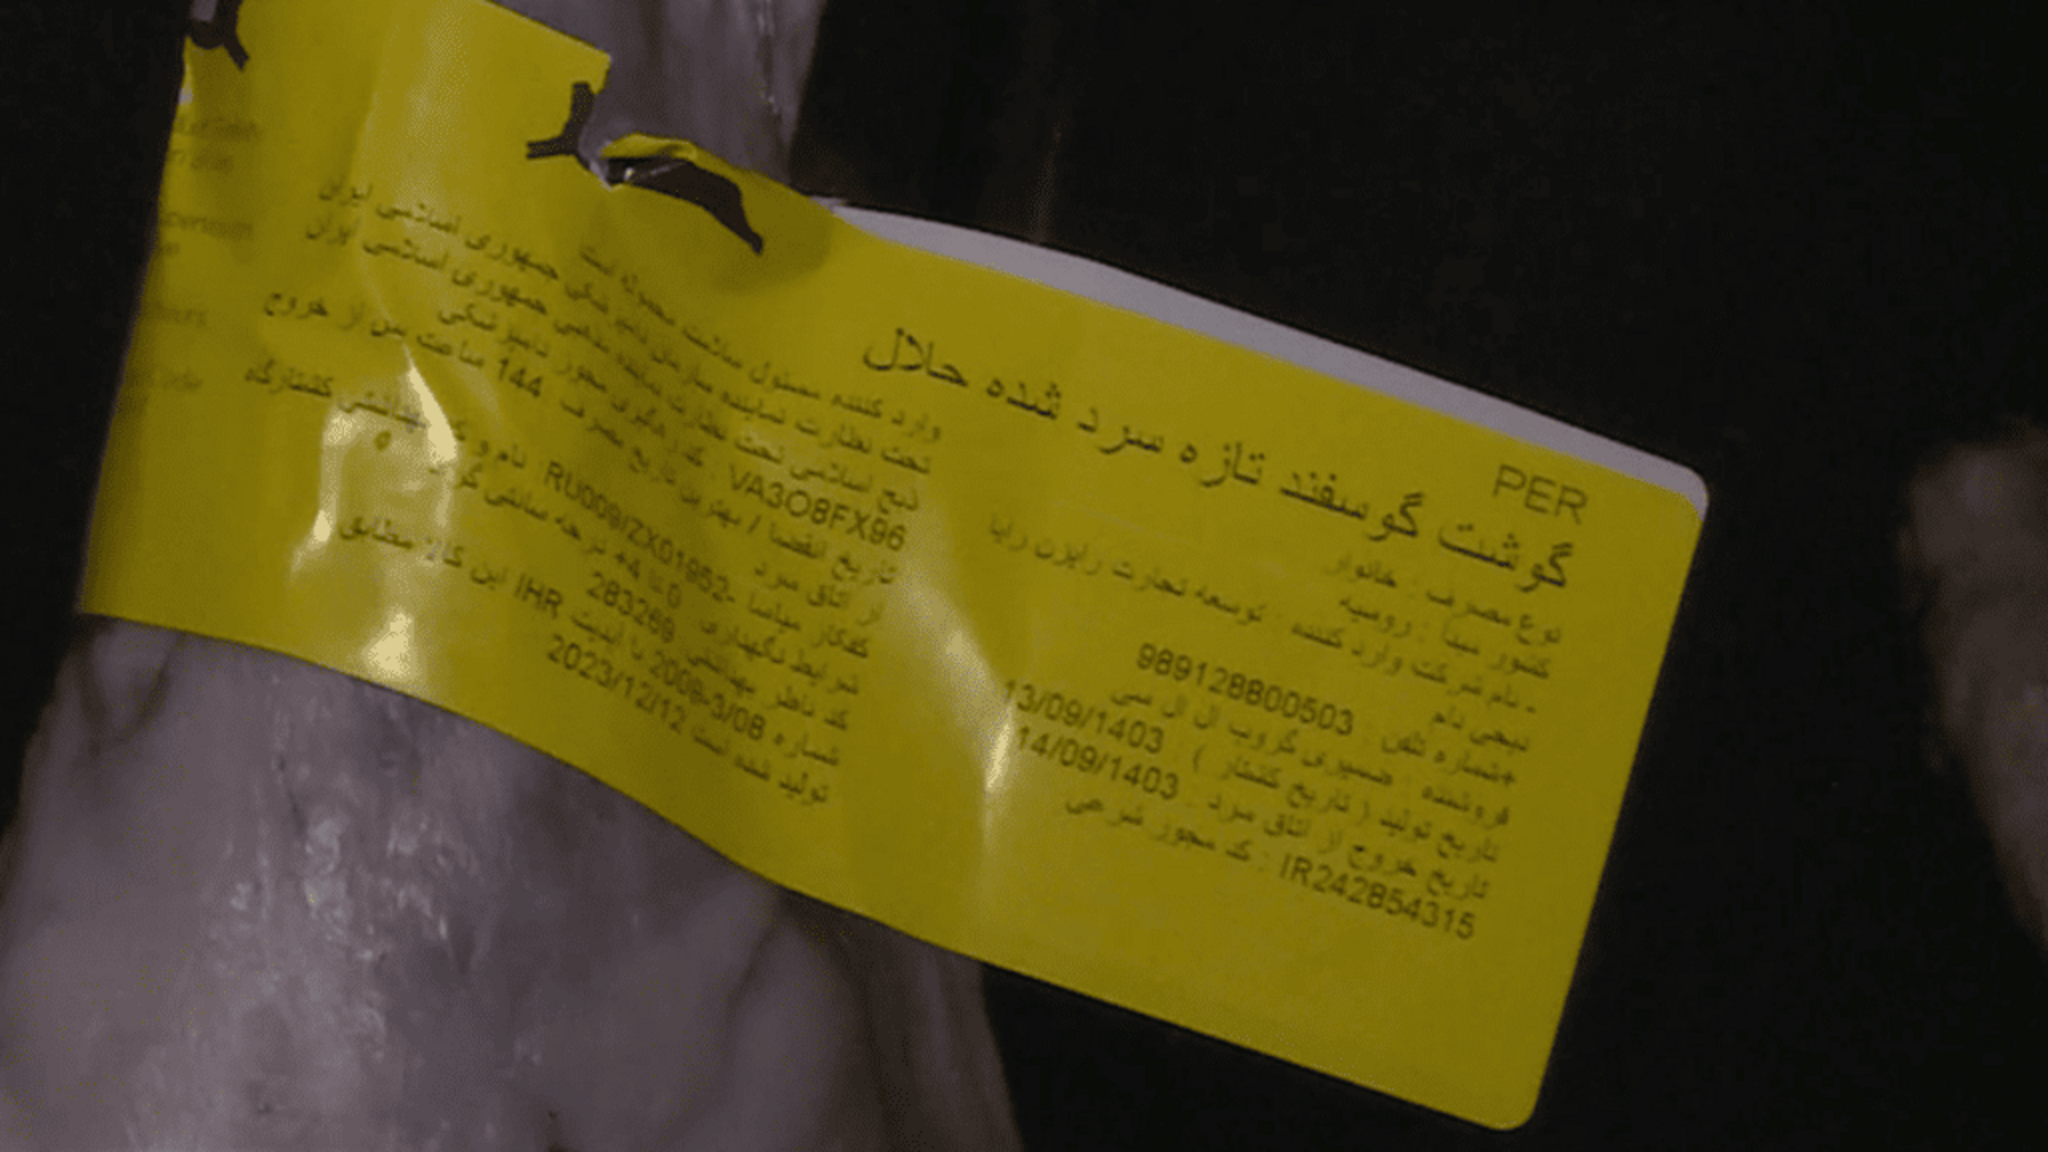 PER
گوشت گوسفند تازه سرد شده حلال
نوع مصرف : خانوار
کشور مبدا : روسیه
- نام شرکت وارد کننده : توسعه تجارت رایزن رایا
ذبحی دام
+شماره تلفن : 989128800503
فروشنده : ضمیری گروپ ال ال سی
تاریخ تولید ( تاریخ کشتار ) : 13/09/1403
تاریخ خروج از اتاق سرد : 14/09/1403
IR242854315 : کد مجوز شرعی
وارد کننده مسئول سلامت محموله است
تحت نظارت نماینده سازمان دامپزشکی جمهوری اسلامی ایران
ذبح اسلامی تحت نظارت نماینده مذهبی جمهوری اسلامی ایران
VA3O8FX96 : کد رهگیری مجوز دامپزشکی
تاریخ انقضا / بهترین تاریخ مصرف 144 ساعت پس از خروج
از اتاق سرد
RU009/ZX01952- نام و کد بهداشتی کشتارگاه
شرایط نگهداری 0 تا 4+ درجه سانتی گراد
کد ناظر بهداشتی 283269
شماره 2009-3/08 با آیدیت IHR این کالا مطابق
تولید شده است 2023/12/12